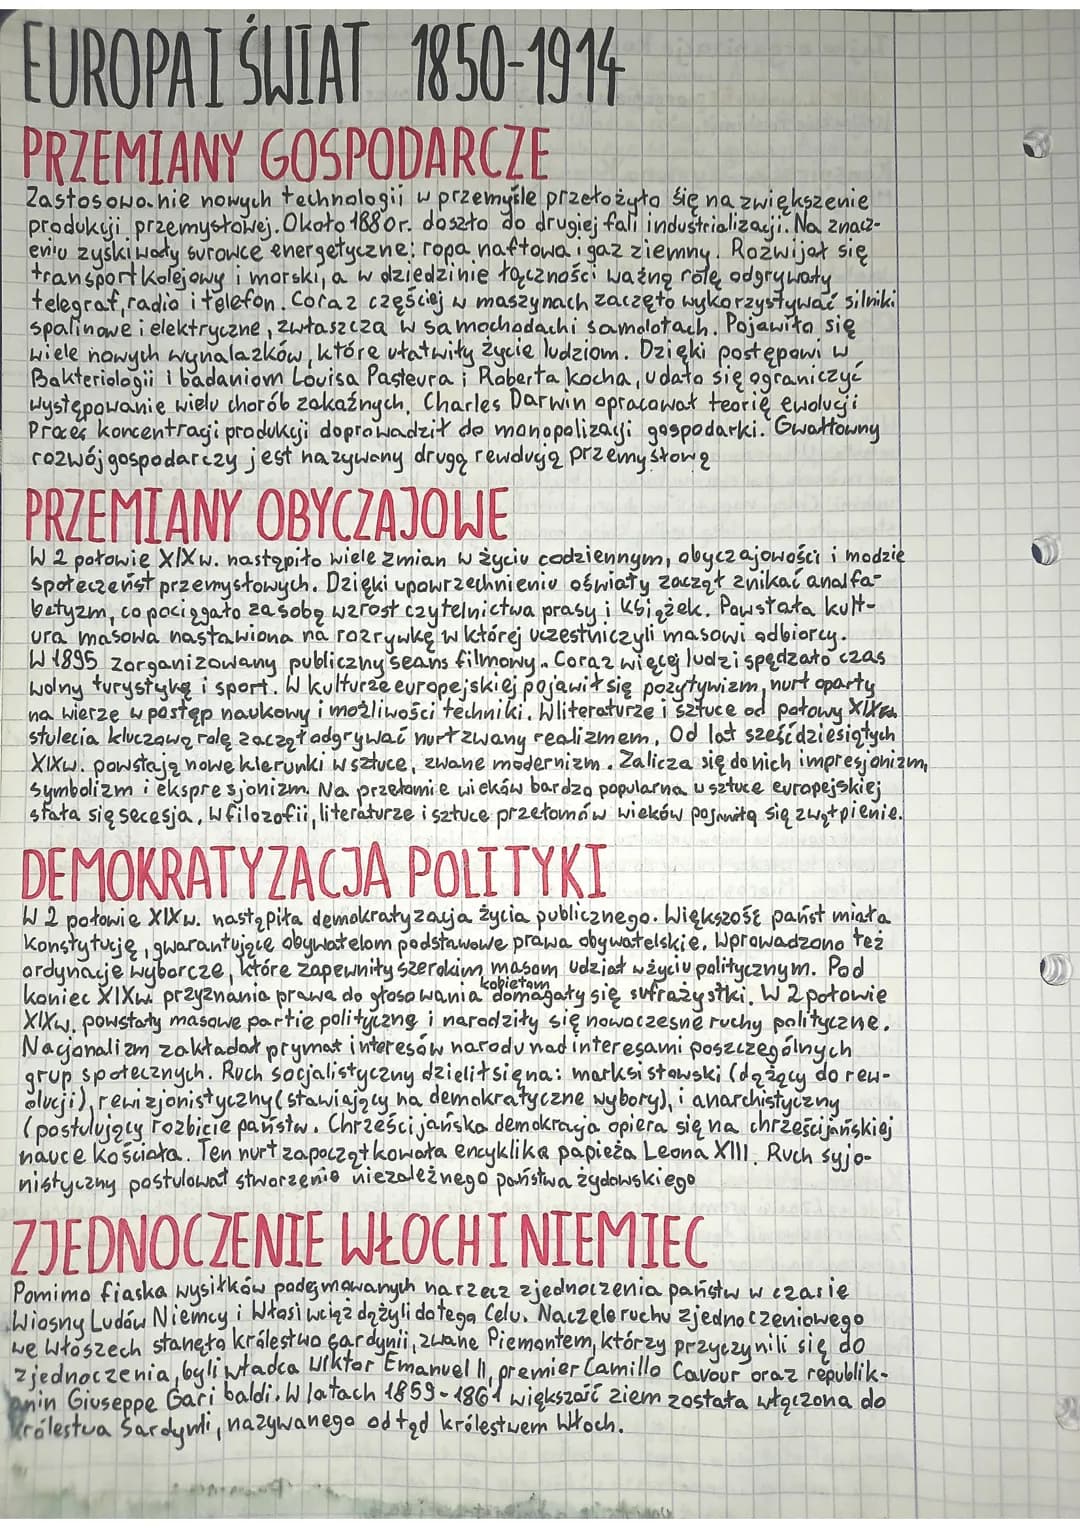 EUROPA I ŚWIAT 1850-1914
PRZEMIANY GOSPODARCZE
Zastosowanie nowych technologii w przemyśle przełożyło się na zwiększenie
produkcji przemysłowej. Około 1880r. doszło do drugiej fali industrializacji. Na znacz-
eniu zyskiwały surowce energetyczne: ropa naftowa i gaz ziemny. Rozwijał się
transport kolejowy i morski, a w dziedzinie łączności ważną rolę odgrywały
telegraf, radio i telefon. Coraz częściej w maszynach zaczęto wykorzystywać silniki
spalinowe i elektryczne, zwłaszcza w samochodach i samolotach. Pojawiło się
wiele nowych wynalazków, które ułatwiły życie ludziom. Dzięki postępowi w
Bakteriologii i badaniom Louisa Pasteura i Roberta Kocha, udało się ograniczyć
występowanie wielu chorób zakaźnych. Charles Darwin opracował teorię ewolucji
Proces koncentracji produkcji doprowadził do monopolizacji gospodarki. Gwałtowny
rozwój gospodarczy jest nazywany drugą rewolucją przemysłową
PRZEMIANY OBYCZAJOWE
W 2 połowie XIXw. nastąpiło wiele zmian w życiu codziennym, obyczajowości i modzie
społeczeńst przemysłowych. Dzięki upowrzechnieniu oświaty zaczął znikać analfa-
betyzm, co pociągało za sobą wzrost czytelnictwa prasy i książek. Powstała kult-
ura masowa nastawiona na rozrywkę w której uczestniczyli masowi odbiorcy.
W 1895 zorganizowany publiczny seans filmowy. Coraz więcej ludzi spędzało czas
wolny turystyką i sport. W kulturze europejskiej pojawił się pozytywizm, nurt oparty
na wierze w postęp naukowy i możliwości techniki. W literaturze i sztuce od połowy XIX
stulecia kluczową rolę zaczął odgrywać nurt zwany realizmem. Od lat sześćdziesiątych
XIXw. powstają nowe kierunki w sztuce, zwane modernizm. Zalicza się do nich impresjonizm,
symbolizm i ekspresjonizm. Na przełomie wieków bardzo popularna w sztuce europejskiej
stała się secesja. W filozofii, literaturze i sztuce przełomów wieków pojawiło się zwątpienie.
DEMOKRATYZACJA POLITYKI
W 2 połowie XIXw. nastąpiła demokratyzacja życia publicznego. Większość państ miała
konstytucję, gwarantujące obywatelom podstawowe prawa obywatelskie. Wprowadzono też
ordynacje wyborcze, które zapewniły szerokim masom udział w życiu politycznym. Pod
koniec XIXw. przyznania prawa do głosowania kobietom domagały się sufrażystki. W 2 połowie
XIXw. powstały masowe partie polityczne i narodziły się nowoczesne ruchy polityczne.
Nacjonalizm zakładał prymat interesów narodu nad interesami poszczególnych
grup społecznych. Ruch socjalistyczny dzielił się na: marksistowski (dążący do rew-
olucji), rewizjonistyczny (stawiający na demokratyczne wybory), i anarchistyczny
(postulujący rozbicie państw. Chrześcijańska demokracja opiera się na chrześcijańskiej
nauce kościoła. Ten nurt zapoczątkowała encyklika papieża Leona XIII. Ruch syjo-
nistyczny postulował stworzenie niezależnego państwa żydowskiego
ZJEDNOCZENIE WŁOCH I NIEMIEC
Pomimo fiaska wysiłków podejmowanych na rzecz zjednoczenia państw w czasie
Wiosny Ludów Niemcy i Włosi wciąż dążyli do tego Celu. Na czele ruchu zjednoczeniowego
we Włoszech stanęło królestwo Sardynii, zwane Piemontem, którzy przyczynili się do
zjednoczenia, byli władca Wiktor Emanuel II, premier Camillo Cavour oraz republik-
anin Giuseppe Garibaldi. W latach 1859-1861 większość ziem została włączona do
królestwa Sardynii, nazywanego odtąd królestwem Włoch.